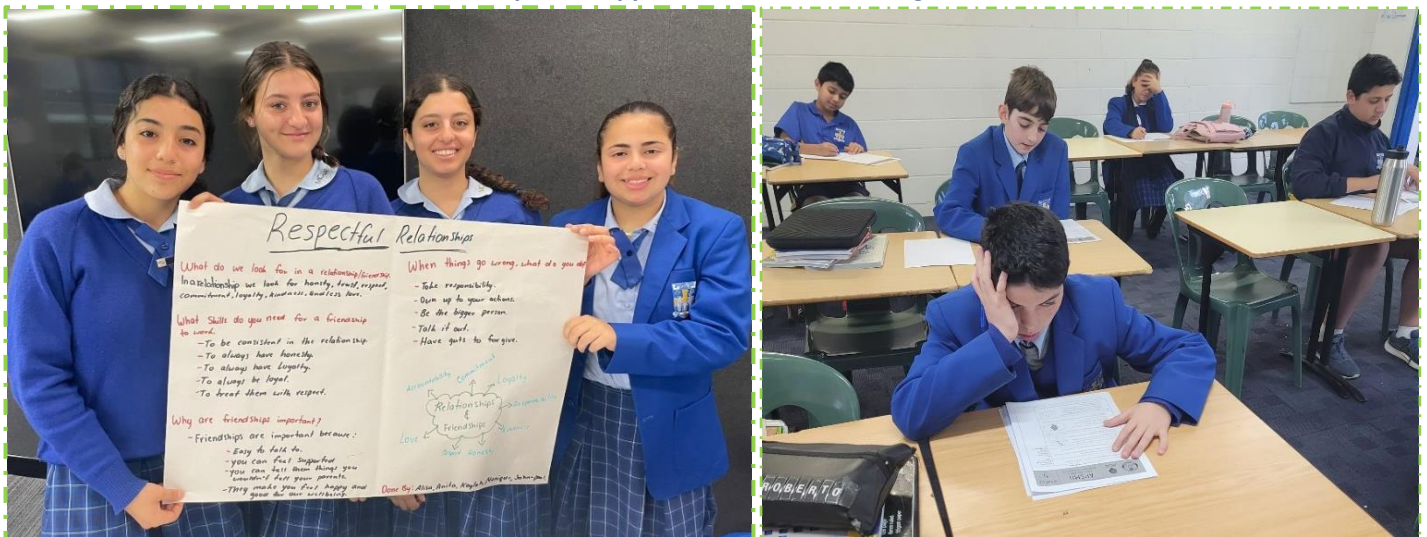 Respectful Relationships
What do we look for in a relationship/friendship
In a relationship we look for honsty, trust, respect,
commitment, loyalty, kindness, endless love.
What Skills do you need for a friendship
to work.
- To be consistent in the relationship
- To always have honesty.
- To always have Loyalty.
- To always be loyal.
- To treat them with respect.
Why are friendships important?
- Friendships are important because:
- Easy to talk to.
- you can feel supported
- you can tell them things you
wouldn't tell your parents.
- They make you feel happy and
good for our wellbeing.
When things go wrong, what do you do?
- Take responsibility.
- Own up to your actions.
- Be the bigger person.
- Talk it out.
- Have guts to forgive.
Accountability
Commitment
Loyalty
Relationships
&
Friendships
Love
Honesty
Done By: Alisa, Anita, Kaylah,
ROBERTO